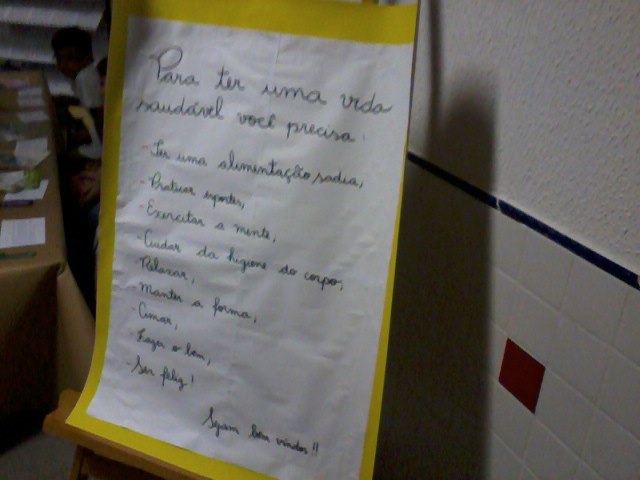 Para ter uma vida
saudável você precisa:
- Ter uma alimentação sadia,
- Praticar esportes,
- Exercitar a mente,
- Cuidar da higiene do corpo,
- Relaxar,
- Manter a forma,
- Amar,
- Fazer o bem,
- Ser feliz!
Sejam bem vindos!!